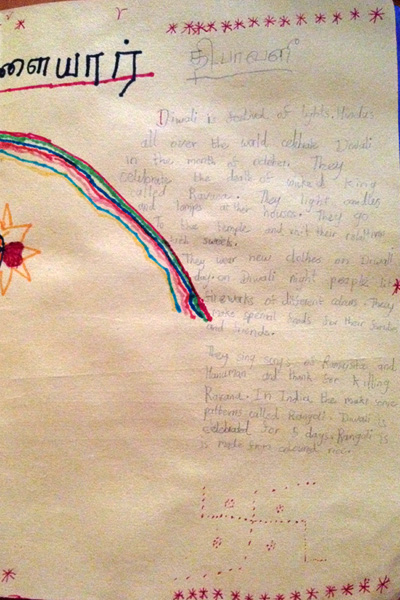 ளையார்
தீபாவளி
Diwali is festival of lights. Hindus
all over the world celebrate Diwali
in the month of october. They
celebrate the death of wicked king
called Ravana. They light candles
and lamps at their houses. They go
To the temple and visit their relatives
with sweets.
They wear new clothes on Diwali
day. on Diwali night people lit
fireworks of different colours. They
make special foods for their family
and friends.
They sing songs of Rama, sita and
Hanuman and thank for killing
Ravana. In India, the make
patterns called Rangoli. Diwali is
celebrated for 5 days. Rangoli is
is made from coloured rice.